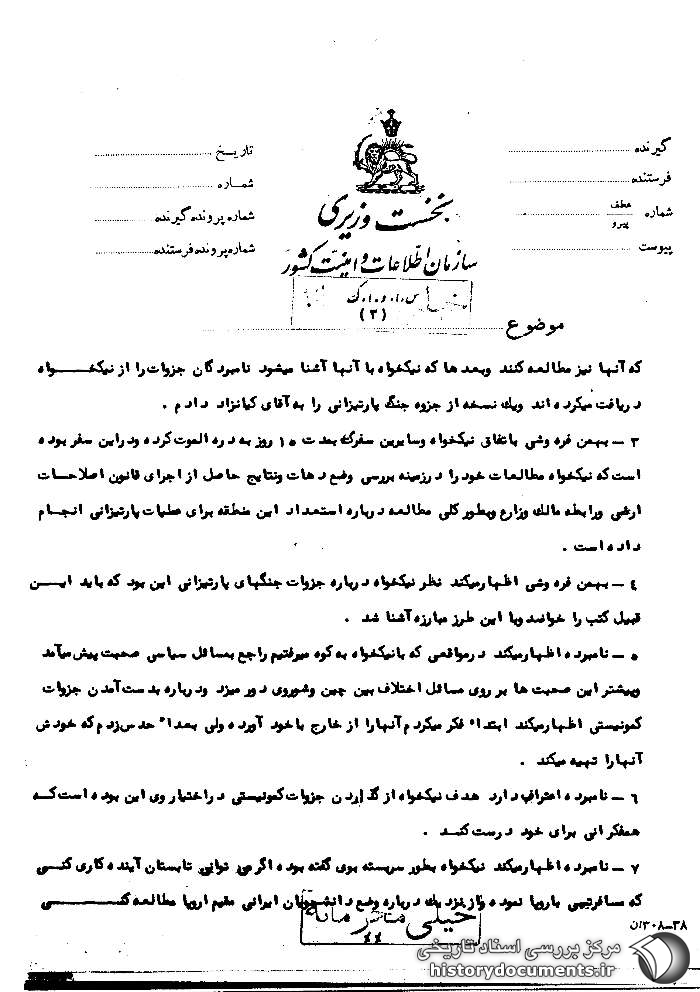 گیرنده
فرستنده
شماره عطف
پیرو
پیوست
تاریخ
شماره
شماره پرونده گیرنده
شماره پرونده فرستنده
نخست وزیری
سازمان اطلاعات و امنیت کشور
س.ا.و.ا.ک
(۳)
موضوع
که آنها نیز مطالعه کنند وبعد ها که نیکخواه با آنها آشنا میشود نامبردگان جزوات را از نیکخواه
دریافت میکرده اند ویک نسخه از جزوه جنگ پارتیزانی را به آقای کیانزاد دادم .
۳ ـ بهمن فره وشی باتفاق نیکخواه وسایرین سفری بمدت ۱۰ روز به دره الموت کرده ودراین سفر بوده
است که نیکخواه مطالعات خود را درزمینه بررسی وضع دهات ونتایج حاصل از اجرای قانون اصلاحات
ارضی ورابطه مالک وزارع وبطور کلی مطالعه درباره استعداد این منطقه برای عملیات پارتیزانی انجام
داده است .
۴ ـ بهمن فره وشی اظهارمیکند نظر نیکخواه درباره جزوات جنگهای پارتیزانی این بود که باید این
قبیل کتب را خواند وبا این طرز مبارزه آشنا شد .
۵ ـ نامبرده اظهارمیکند درمواقعی که بانیکخواه به کوه میرفتیم راجع بمسائل سیاسی صحبت پیش میآمد
وبیشتر این صحبت ها بر روی مسائل اختلاف بین چین وشوروی دور میزد ودرباره بدست آمدن جزوات
کمونیستی اظهارمیکند ابتداء فکر میکردم آنهارا از خارج باخود آورده ولی بعداً حدس زدم که خودش
آنهارا تهیه میکند .
۶ ـ نامبرده اعتراف دارد هدف نیکخواه از گذاردن جزوات کمونیستی دراختیار وی این بوده است که
همفکرانی برای خود درست کند .
۷ ـ نامبرده اظهارمیکند نیکخواه بطور سربسته بوی گفته بوده اگر می توانی تابستان آینده کاری کنی
که مسافرتی باروپا نموده واز نزدیک درباره وضع دانشجویان ایرانی مقیم اروپا مطالعه کنی
خیلی محرمانه
۴۴
۳۸-۳۰۸/ن
مرکز بررسی اسناد تاریخی
historydocuments.ir